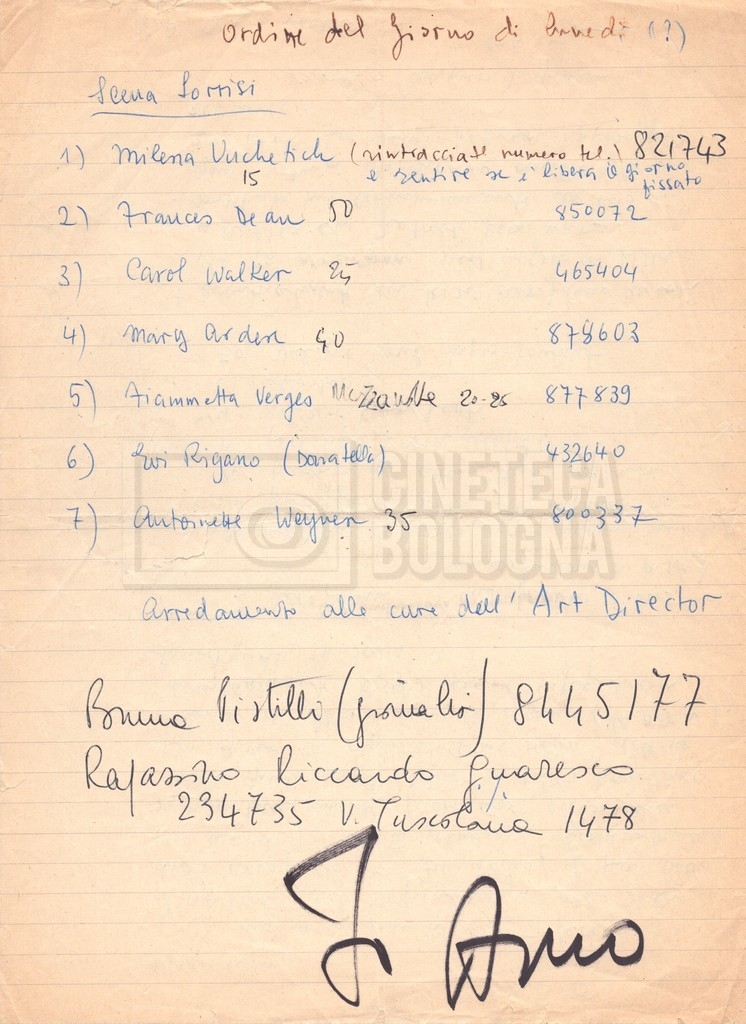 Ordine del Giorno di lunedì (?)
Scena Sorrisi
1) Milena Vuchetich (rintracciate numero tel.) 821743
15 e sentire se è libera il giorno fissato
2) Frances Dean 50 850072
3) Carol Walker 25 465404
4) Mary Arden 40 878603
5) Fiammetta Verges Mozzarelle 20-25 877839
6) Evi Rigano (Donatella) 432640
7) Antoinette Weynen 35 800337
CINETECA
BOLOGNA
Arredamento alle cure dell'Art Director
Bruna Pistillo (giornalista) 8445177
Ragassino Riccardo Guaresco
234735 V. Tuscolana 1478